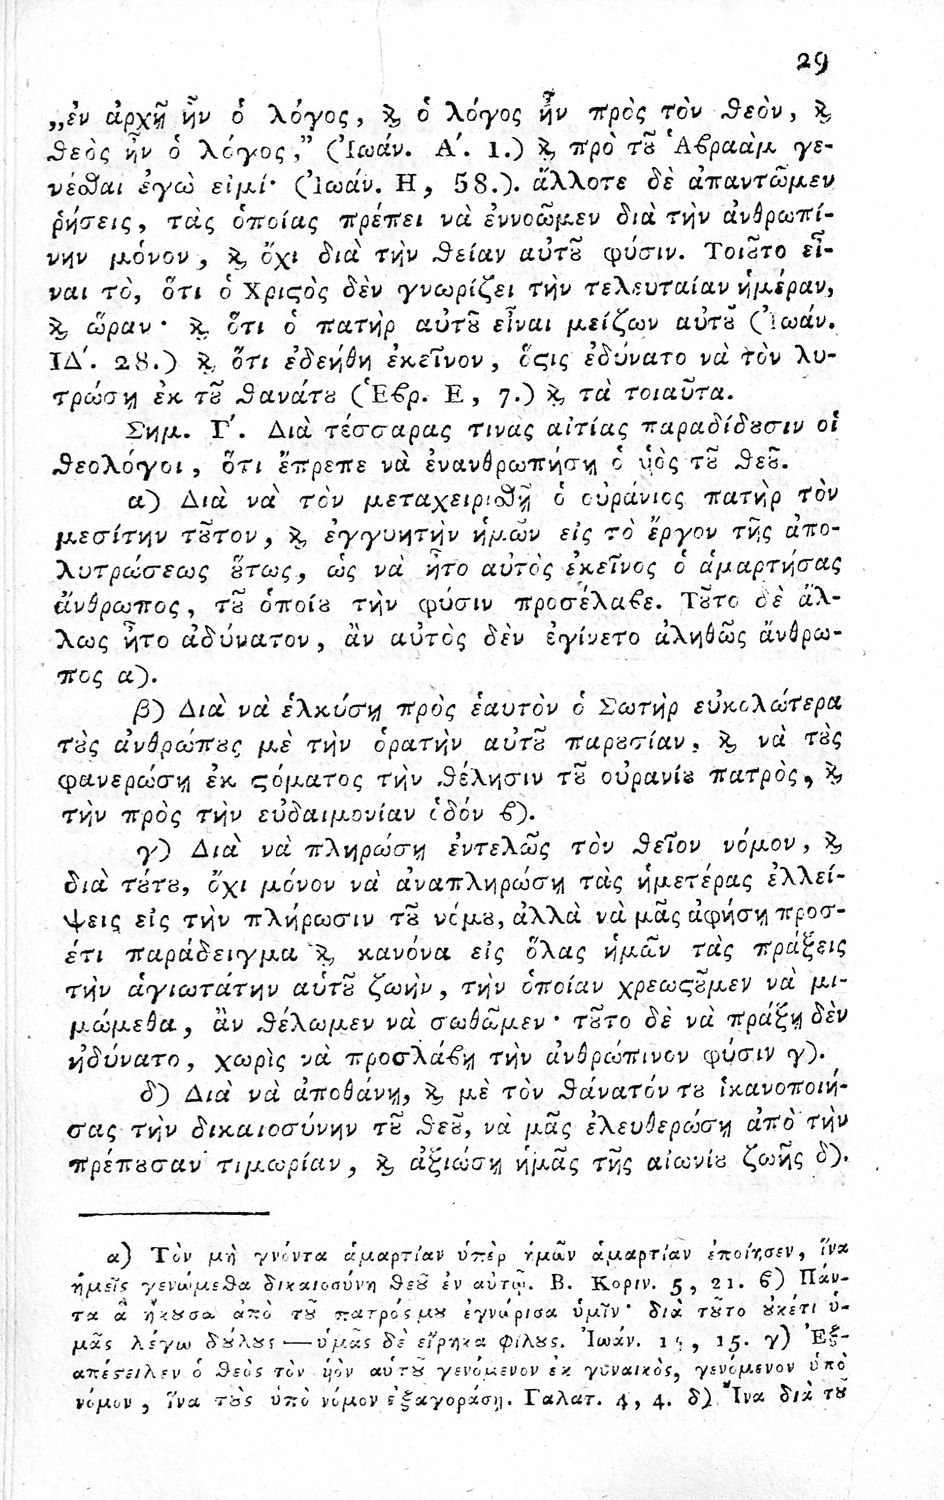 29
„ἐν ἀρχῇ ἦν ὁ λόγος, ϗ ὁ λόγος ἦν πρὸς τὸν ϑεὸν, ϗ
ϑεὸς ἦν ὁ λόγος,” (Ἰωάν. Α΄. 1.) ϗ πρὸ τȣ͂ Ἀβραὰμ γε-
νέσθαι ἐγὼ εἰμί· (Ἰωάν. Η, 58.). ἄλλοτε δὲ ἀπαντῶμεν
ῥήσεις, τὰς ὁποίας πρέπει νὰ ἐννοῶμεν διὰ τὴν ἀνθρωπί-
νην μόνον, ϗ ὄχι διὰ τὴν ϑείαν αὐτȣ͂ φύσιν. Τοιȣ͂το εἶ-
ναι τὸ, ὅτι ὁ Χριϛὸς δὲν γνωρίζει τὴν τελευταίαν ἡμέραν,
ϗ ὥραν· ϗ ὅτι ὁ πατὴρ αὐτȣ͂ εἶναι μείζων αὐτȣ͂ (Ἰωάν.
ΙΔ΄. 28.) ϗ ὅτι ἐδεήθη ἐκεῖνον, ὅϛις ἐδύνατο νὰ τὸν λυ-
τρώσῃ ἐκ τȣ͂ ϑανάτȣ (Ἑβρ. Ε, 7.) ϗ τὰ τοιαῦτα.
Σημ. Γ΄. Διὰ τέσσαρας τινὰς αἰτίας παραδίδȣσιν οἱ
ϑεολόγοι, ὅτι ἔπρεπε νὰ ἐνανθρωπήσῃ ὁ ὑιὸς τȣ͂ ϑεȣ͂.
α) Διὰ νὰ τὸν μεταχειρισθῇ ὁ οὐράνιος πατὴρ τὸν
μεσίτην τȣ͂τον, ϗ ἐγγυητὴν ἡμῶν εἰς τὸ ἔργον τῆς ἀπο-
λυτρώσεως ȣ̔́τως, ὡς νὰ ἦτο αὐτὸς ἐκεῖνος ὁ ἁμαρτήσας
ἄνθρωπος, τȣ͂ ὁποίȣ τὴν φύσιν προσέλαβε. Τȣ͂το δὲ ἄλ-
λως ἦτο ἀδύνατον, ἂν αὐτὸς δὲν ἐγίνετο ἀληθῶς ἄνθρω-
πος α).
β) Διὰ νὰ ἑλκύσῃ πρὸς ἑαυτὸν ὁ Σωτὴρ εὐκολώτερα
τȣ̀ς ἀνθρώπȣς μὲ τὴν ὁρατὴν αὐτȣ͂ παρȣσίαν, ϗ νὰ τȣ̀ς
φανερώσῃ ἐκ ϛόματος τὴν ϑέλησιν τȣ͂ οὐρανίȣ πατρὸς, ϗ
τὴν πρὸς τὴν εὐδαιμονίαν ὁδόν β).
γ) Διὰ νὰ πληρώσῃ ἐντελῶς τὸν ϑεῖον νόμον, ϗ
διὰ τȣ́τȣ, ὄχι μόνον νὰ ἀναπληρώσῃ τὰς ἡμετέρας ἐλλεί-
ψεις εἰς τὴν πλήρωσιν τȣ͂ νόμȣ, ἀλλὰ νὰ μᾶς ἀφήσῃ προσ-
έτι παράδειγμα ϗ κανόνα εἰς ὅλας ἡμῶν τὰς πράξεις
τὴν ἁγιωτάτην αὑτȣ͂ ζωὴν, τὴν ὁποίαν χρεωϛȣ͂μεν νὰ μι-
μώμεθα, ἂν ϑέλωμεν νὰ σωθῶμεν· τȣ͂το δὲ νὰ πράξῃ δὲν
ηδύνατο, χωρὶς νὰ προσλάβῃ τὴν ἀνθρώπινον φύσιν γ).
δ) Διὰ νὰ ἀποθάνῃ, ϗ μὲ τὸν ϑάνατόν τȣ ἱκανοποιή-
σας τὴν δικαιοσύνην τȣ͂ ϑεȣ͂, νὰ μᾶς ἐλευθερώσῃ ἀπὸ τὴν
πρέπȣσαν τιμωρίαν, ϗ ἀξιώσῃ ἡμᾶς τῆς αἰωνίȣ ζωῆς δ).
α) Τὸν μὴ γνόντα ἁμαρτίαν ὑπὲρ ἡμῶν ἁμαρτίαν ἐποίησεν, ἵνα
ἡμεῖς γενώμεθα δικαιοσύνη ϑεȣ͂ ἐν αὐτῷ. Β. Κοριν. 5, 21. β) Πάν-
τα ἃ ἤκȣσα ἀπὸ τȣ͂ πατρός μȣ ἐγνώρισα ὑμῖν· διὰ τȣ͂το ȣ̓κέτι ὑ-
μᾶς λέγω δȣ́λȣς — ὑμᾶς δὲ εἴρηκα φίλȣς. Ἰωάν. 15, 15. γ) Ἐξ-
απέϛειλεν ὁ ϑεὸς τὸν ὑιὸν αὐτȣ͂ γενόμενον ἐκ γυναικὸς, γενόμενον ὑπὸ
νόμον, ἵνα τȣ̀ς ὑπὸ νόμον ἐξαγοράσῃ. Γαλατ. 4, 4. δ) Ἵνα διὰ τȣ͂